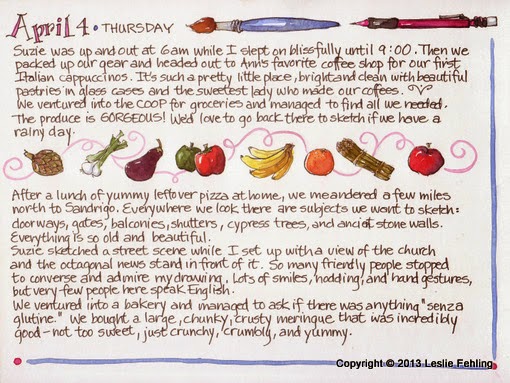 April 4 • THURSDAY
Suzie was up and out at 6am while I slept on blissfully until 9:00. Then we
packed up our gear and headed out to Ann's favorite coffee shop for our first
Italian cappuccinos. It's such a pretty little place, bright and clean with beautiful
pastries in glass cases and the sweetest lady who made our coffees.
We ventured into the COOP for groceries and managed to find all we needed.
The produce is GORGEOUS! We'd love to go back there to sketch if we have a
rainy day.
After a lunch of yummy leftover pizza at home, we meandered a few miles
north to Sandrigo. Everywhere we look there are subjects we want to sketch:
doorways, gates, balconies, shutters, cypress trees, and ancient stone walls.
Everything is so old and beautiful.
Suzie sketched a street scene while I set up with a view of the church
and the octagonal news stand in front of it. So many friendly people stopped
to converse and admire my drawing. Lots of smiles, nodding, and hand gestures,
but very few people here speak English.
We ventured into a bakery and managed to ask if there was anything "senza
glutine." We bought a large, chunky, crusty meringue that was incredibly
good - not too sweet, just crunchy, crumbly, and yummy.
Copyright © 2013 Leslie Fehling